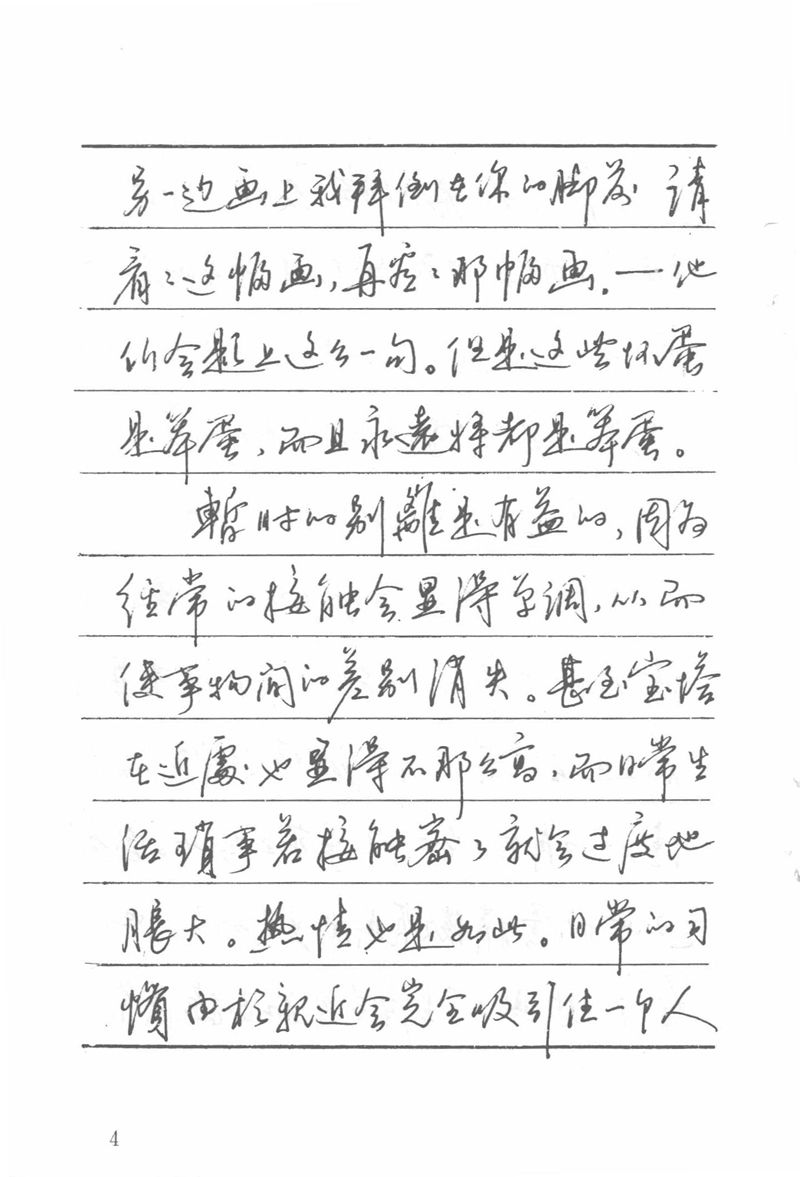 另一边画上我拜倒在你的脚前 请
看看这幅画，再看看那幅画。—他
们会题上这么一句。但是这些坏蛋
是笨蛋，而且永远将都是笨蛋。
暫时的别離是有益的，因为
经常的接触会显得单调，从而
使事物间的差别消失。甚至宝塔
在近處也显得不那么高，而日常生
活瑣事若接触密了就会过度地
脹大。热情也是如此。日常的习
慣由於親近会完全吸引住一个人
4